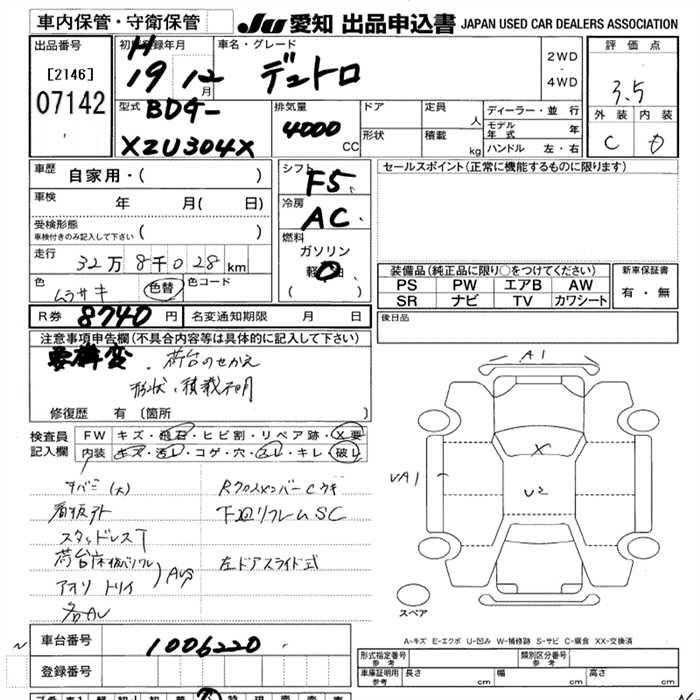 車内保管・守衛保管
JU 愛知 出品申込書 JAPAN USED CAR DEALERS ASSOCIATION
出品番号
[2146]
07142
初度登録年月
H
19 12 月
車名・グレード
デュトロ
2WD
・
4WD
評価点
3.5
外装 内装
C D
型式
BDG-
XZU304X
排気量
4000 CC
ドア
形状
定員 人
積載 kg
ディーラー・並行
モデル年式 年
ハンドル 左・右
車歴 自家用・( )
車検 年 月( 日)
受検形態
車検付きのみ記入して下さい ( )
走行 32万8千028 km
色 ムラサキ 色替 色コード
R券 8740 円 名変通知期限 月 日
シフト F5
冷房 AC
燃料
ガソリン
軽油
( )
セールスポイント(正常に機能するものに限ります)
装備品(純正品に限り○をつけてください)
PS PW エアB AW
SR ナビ TV カワシート
新車保証書
有・無
後日品
注意事項申告欄(不具合内容等は具体的に記入して下さい)
要構変 . 荷台のせかえ
形状、積載不明
修復歴 有 〔箇所 〕
検査員
記入欄
FW キズ・飛石・ヒビ割・リペア跡・X要
内装 キズ・汚レ・コゲ・穴・スレ・キレ・破レ
サビ(大)
看板外
スタッドレスT
アオリ トリイ
Rクロスメンバーcウギ
下廻リフレームSC
左ドアスライド式
A1
VA1
X
U2
スペア
A-キズ E-エクボ U-凹み W-補修跡 S-サビ C-腐食 XX-交換済
車台番号 1006220
登録番号
形式指定番号
参考
類別区分番号
参考
車庫証明用
参考
長さ cm 幅 cm 高さ cm